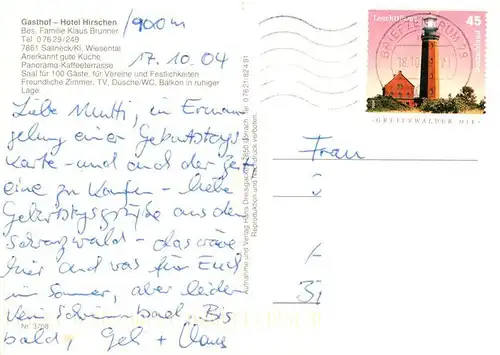 Gasthof – Hotel Hirschen
Bes. Familie Klaus Brunner
Tel 0 76 29/249
7861 Sallneck/Kl. Wiesental
Anerkannt gute Küche
Panorama-Kaffeeterrasse
Saal für 100 Gäste, für Vereine und Festlichkeiten
Freundliche Zimmer, TV, Dusche/WC, Balkon in ruhiger
Lage
/900m
17.10.04
Liebe Mutti, in Erman-
gelung einer Geburtstags-
karte - und auch der Zeit
eine zu kaufen - liebe
Geburtstagsgrüße aus dem
Schwarzwald - das wäre
hier auch was für Euch
im Sommer, aber leider
kein Schwimmbad. Bis
bald, Gel + Klaus
Nr. 3708
Aufnahme und Verlag Hans
Reproduktion und Nachdruck verboten.
Leuchttürme
45
BRIEFZENTRUM 79
18.10
GREIFSWALDER OIE
Frau